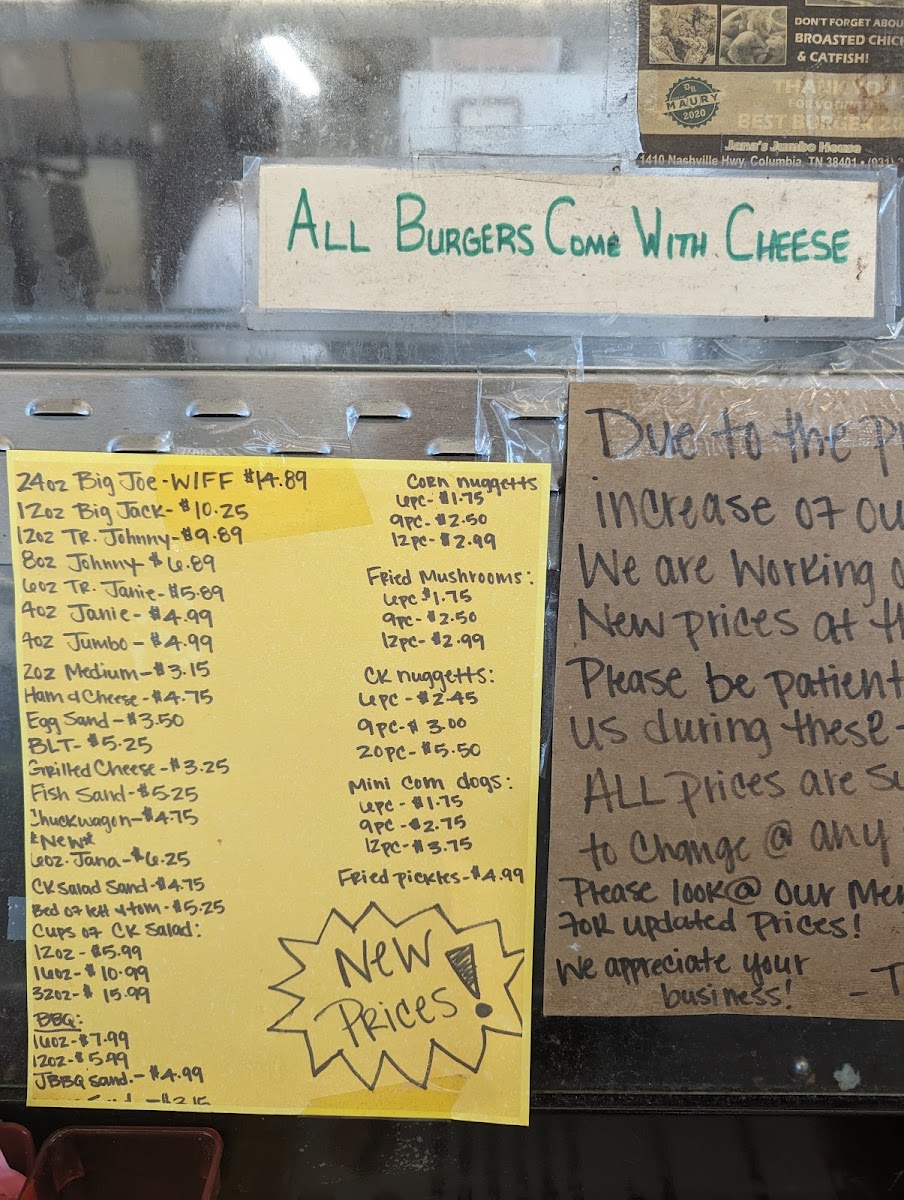 DON'T FORGET ABOU
BROASTED CHIC
& CATFISH!
THANK YOU
BEST BURGER
MAURY
2020
Jana's Jumbo House
1410 Nashville Hwy, Columbia, TN 38401 • (931)
ALL BURGERS COME WITH CHEESE
24oz Big Joe - W/FF $14.89
12oz Big Jack - $10.25
12oz TR. Johnny - $9.89
8oz Johnny $6.89
6oz TR. Janie - $5.89
4oz Janie - $4.99
4oz Jumbo - $4.99
2oz Medium - $3.15
Ham & Cheese - $4.75
Egg Sand - $3.50
BLT - $5.25
Grilled Cheese - $3.25
Fish Sand - $5.25
Chuckwagon - $4.75
*New*
6oz. Jana - $6.25
CK Salad Sand - $4.75
Bed of lett & tom - $5.25
Cups of CK Salad:
12oz - $5.99
16oz - $10.99
32oz - $15.99
BBQ:
16oz - $7.99
12oz - $5.99
JBBQ Sand. - $4.99
Corn nuggetts
6pc - $1.75
9pc - $2.50
12pc - $2.99
Fried Mushrooms:
6pc $1.75
9pc - $2.50
12pc - $2.99
CK nuggetts:
6pc - $2.45
9pc - $3.00
20pc - $5.50
Mini corn dogs:
6pc - $1.75
9pc - $2.75
12pc - $3.75
Fried pickles - $4.99
New
Prices!
Due to the pr
increase of ou
We are working o
New prices at th
Please be patient
us during these
ALL prices are su
to change @ any
Please look @ our Men
for updated prices!
We appreciate your
business! - T